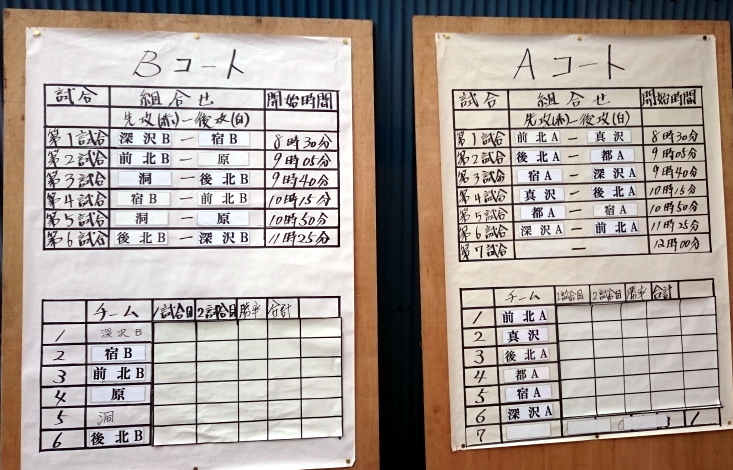 Bコート
試合 組合せ 開始時間
先攻(赤)ー後攻(白)
第1試合 深沢B ー 宿B 8時30分
第2試合 前北B ー 原 9時05分
第3試合 洞 ー 後北B 9時40分
第4試合 宿B ー 前北B 10時15分
第5試合 洞 ー 原 10時50分
第6試合 後北B ー 深沢B 11時25分
チーム 1試合目 2試合目 勝率 合計
1 深沢B
2 宿B
3 前北B
4 原
5 洞
6 後北B
Aコート
試合 組合せ 開始時間
先攻(赤)ー後攻(白)
第1試合 前北A ー 真沢 8時30分
第2試合 後北A ー 都A 9時05分
第3試合 宿A ー 深沢A 9時40分
第4試合 真沢 ー 後北A 10時15分
第5試合 都A ー 宿A 10時50分
第6試合 深沢A ー 前北A 11時25分
第7試合 ー 12時00分
チーム 1試合目 2試合目 勝率 合計
1 前北A
2 真沢
3 後北A
4 都A
5 宿A
6 深沢A
7